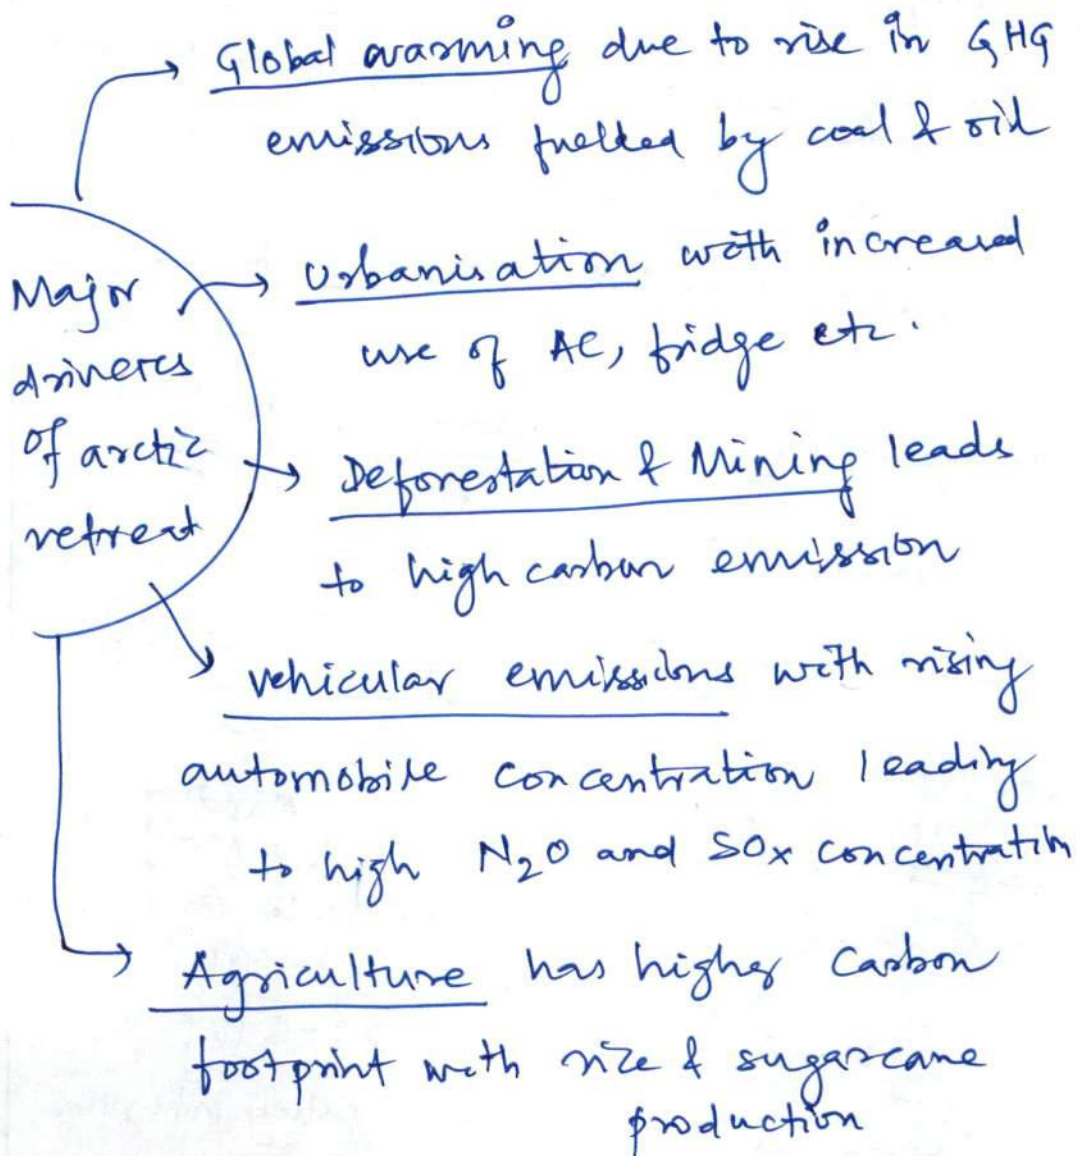 Global warming due to rise in GHG
emissions fuelled by coal & oil
Major
drivers
of arctic
retreat
Urbanisation with increased
use of AC, fridge etc.
Deforestation & Mining leads
to high carbon emission
vehicular emissions with rising
automobile concentration leading
to high N₂O and SOx concentration
Agriculture has higher Carbon
footprint with rice & sugarcane
production